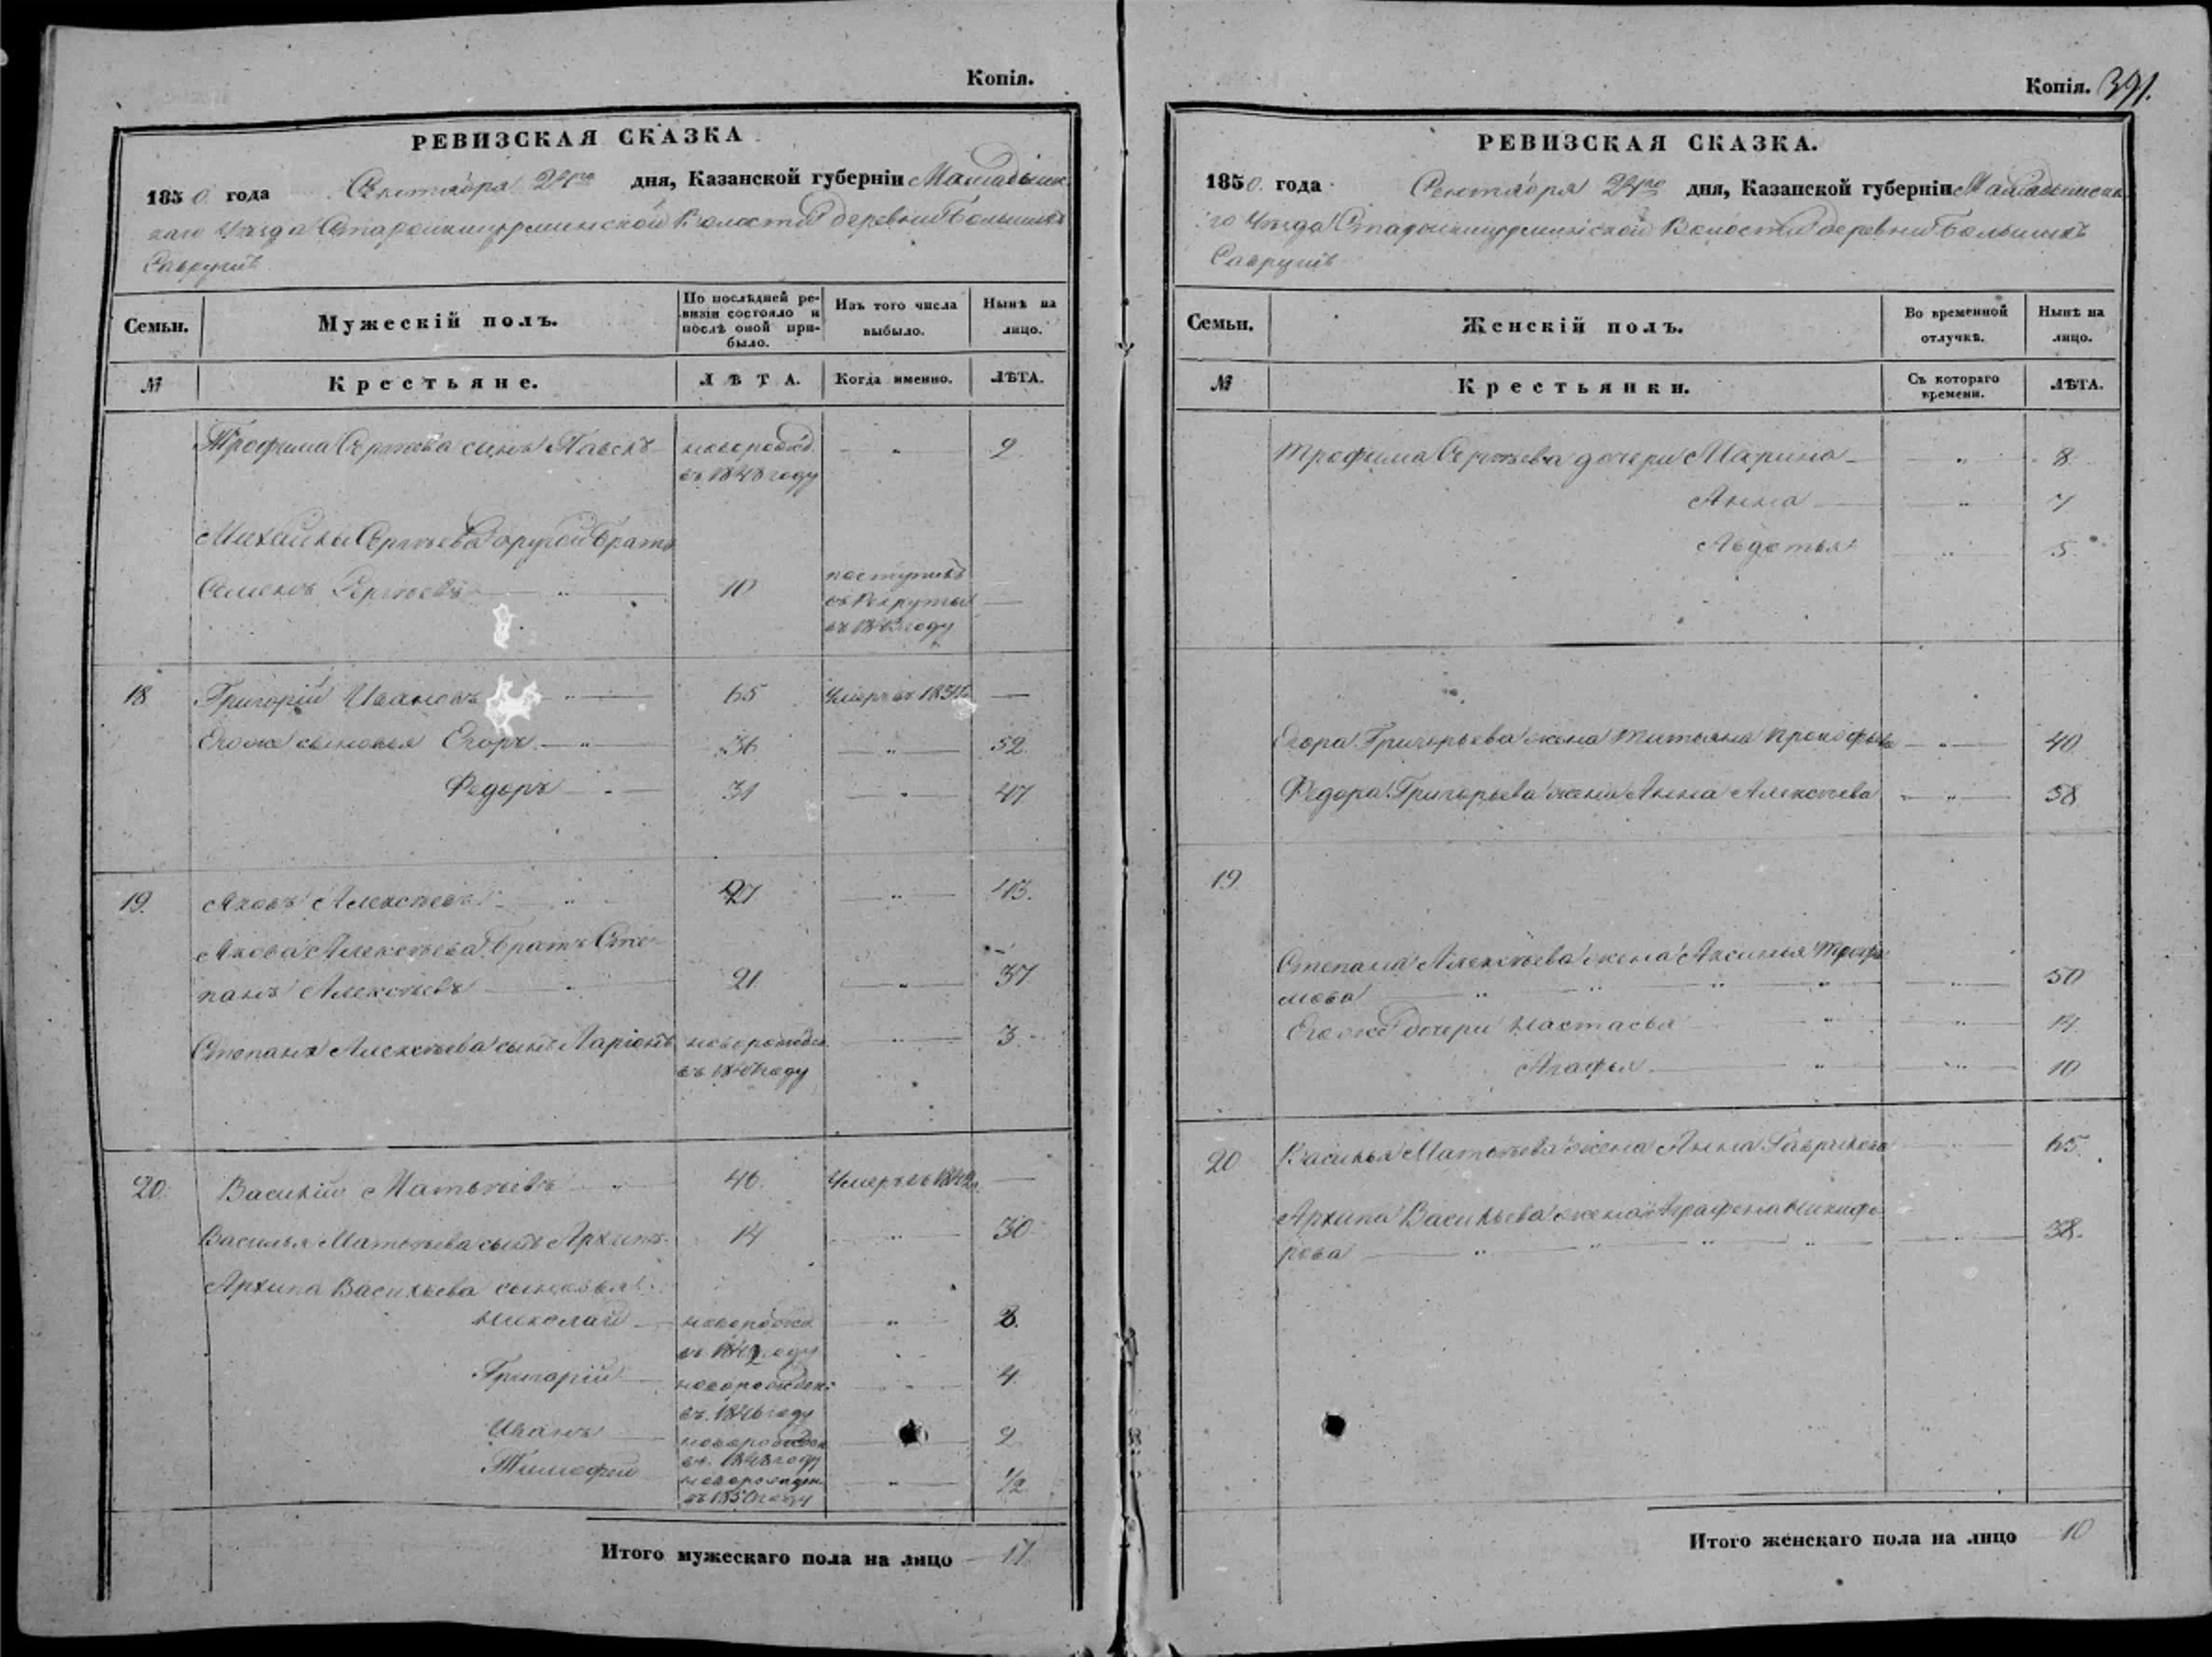 Копія.
РЕВИЗСКАЯ СКАЗКА
1850. года Сентября 24го дня, Казанской губерніи Мамадышс
каго Уѣзда Волости деревни Большихъ
Савруши
Семьи. Мужескій полъ. По послѣдней ре-визіи состояло и послѣ оной при-было. Изъ того числа выбыло. Нынѣ на лицо.
№ Крестьяне. ЛѢТА. Когда именно. ЛѢТА.
Трофима Сергѣева сынъ Павелъ новорожд. 2
въ 1848 году
Михайлы Сергѣева другой братъ
Семенъ Сергѣевъ 10 поступилъ въ Рекруты —
18 Григорій Ивановъ 65 Умеръ въ —
Егоже сыновья Егоръ 36 52.
Федоръ 31 47
19. Яковъ Алексѣевъ 27 43.
Якова Алексѣева братъ Сте-
панъ Алексѣевъ 21. 37
Степана Алексѣева сынъ Ларіонъ новорожден. 3.
въ году
20. Василій Матвѣевъ 46. Умеръ въ —
Василья Матвѣева сынъ Архипъ 14 30
Архипа Васильева сыновья
Николай новорожд. 8.
въ 1842 году
Григорій новорожден: 4.
въ 1846 году
Иванъ новорожден 2
въ 1848 году
Тимофей новорожден. 1/2
въ 1850 году
Итого мужескаго пола на лицо 17.
Копія. 391.
РЕВИЗСКАЯ СКАЗКА.
1850. года Сентября 24го дня, Казанской губерніи Мамадышска
го Уѣзда Волости деревни Большихъ
Савруши
Семьи. Женскій полъ. Во временной отлучкѣ. Нынѣ на лицо.
№ Крестьянки. Съ котораго времени. ЛѢТА.
Трофима Сергѣева дочери Марина 8.
Анна 7
Авдотья 5.
Егора Григорьева жена Татьяна Прокофьева 40
Федора Григорьева жена Анна Алексѣева 58
19
Степана Алексѣева жена Аксинья Трофи
мова 50
Егоже дочери Настасья 14.
Агафья 10
20 Василья Матвѣева жена Анна Гаврилова 65.
Архипа Васильева жена Аграфена Никифо
рова 38.
Итого женскаго пола на лицо 10